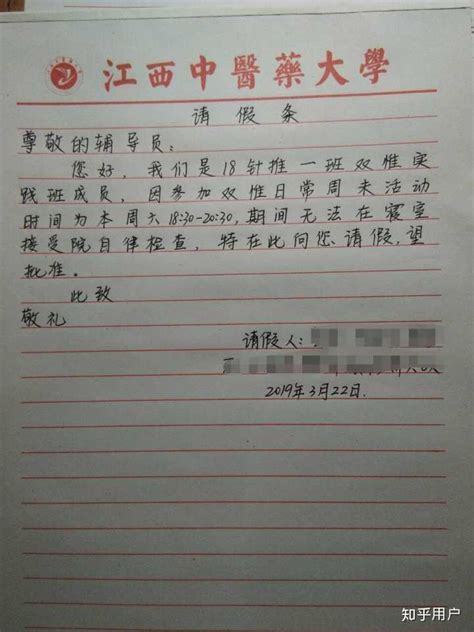 江西中醫藥大學
请假条
尊敬的辅导员:
您好，我们是18针推一班双惟实
践班成员，因参加双惟日常周末活动
时间为本周六18:30-20:30,期间无法在寝室
接受院自律检查，特在此向您请假,望
批准。
此致
敬礼
请假人:
2019年3月22日.
知乎用户